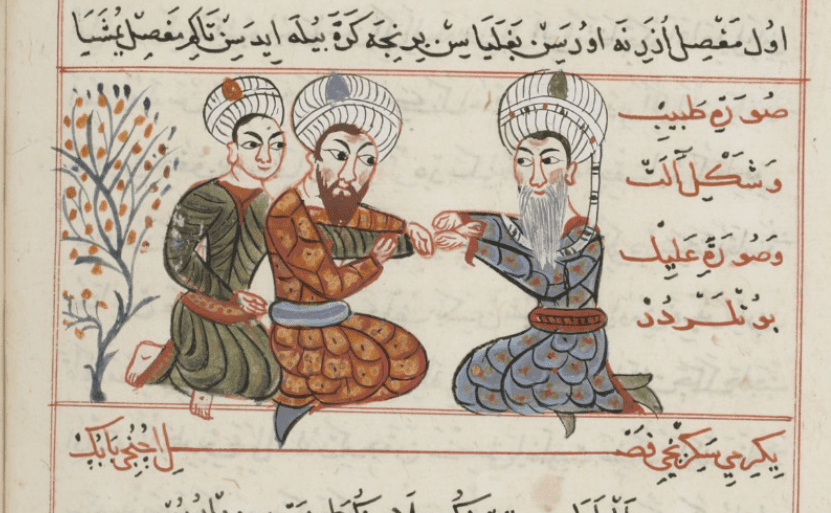 اوُل مَفْصِل اُزَرِنَه اوُرَسِنْ بَغْلَيَاسِنْ بِرْنِجَه كَرَّة بُيْلَه اِيدَسِنْ تَاكِمْ مَفْصِل يُمْشَيَا
صُورَةِ طَبِيبْ
وَشَكْلِ آلَتْ
وَصُورَةِ عَلِيلْ
بُونْلَرْدُرْ
يِكِرْمِي سَكِزِنْجِي فَصْل اُچُنْجِي بَابُكْ